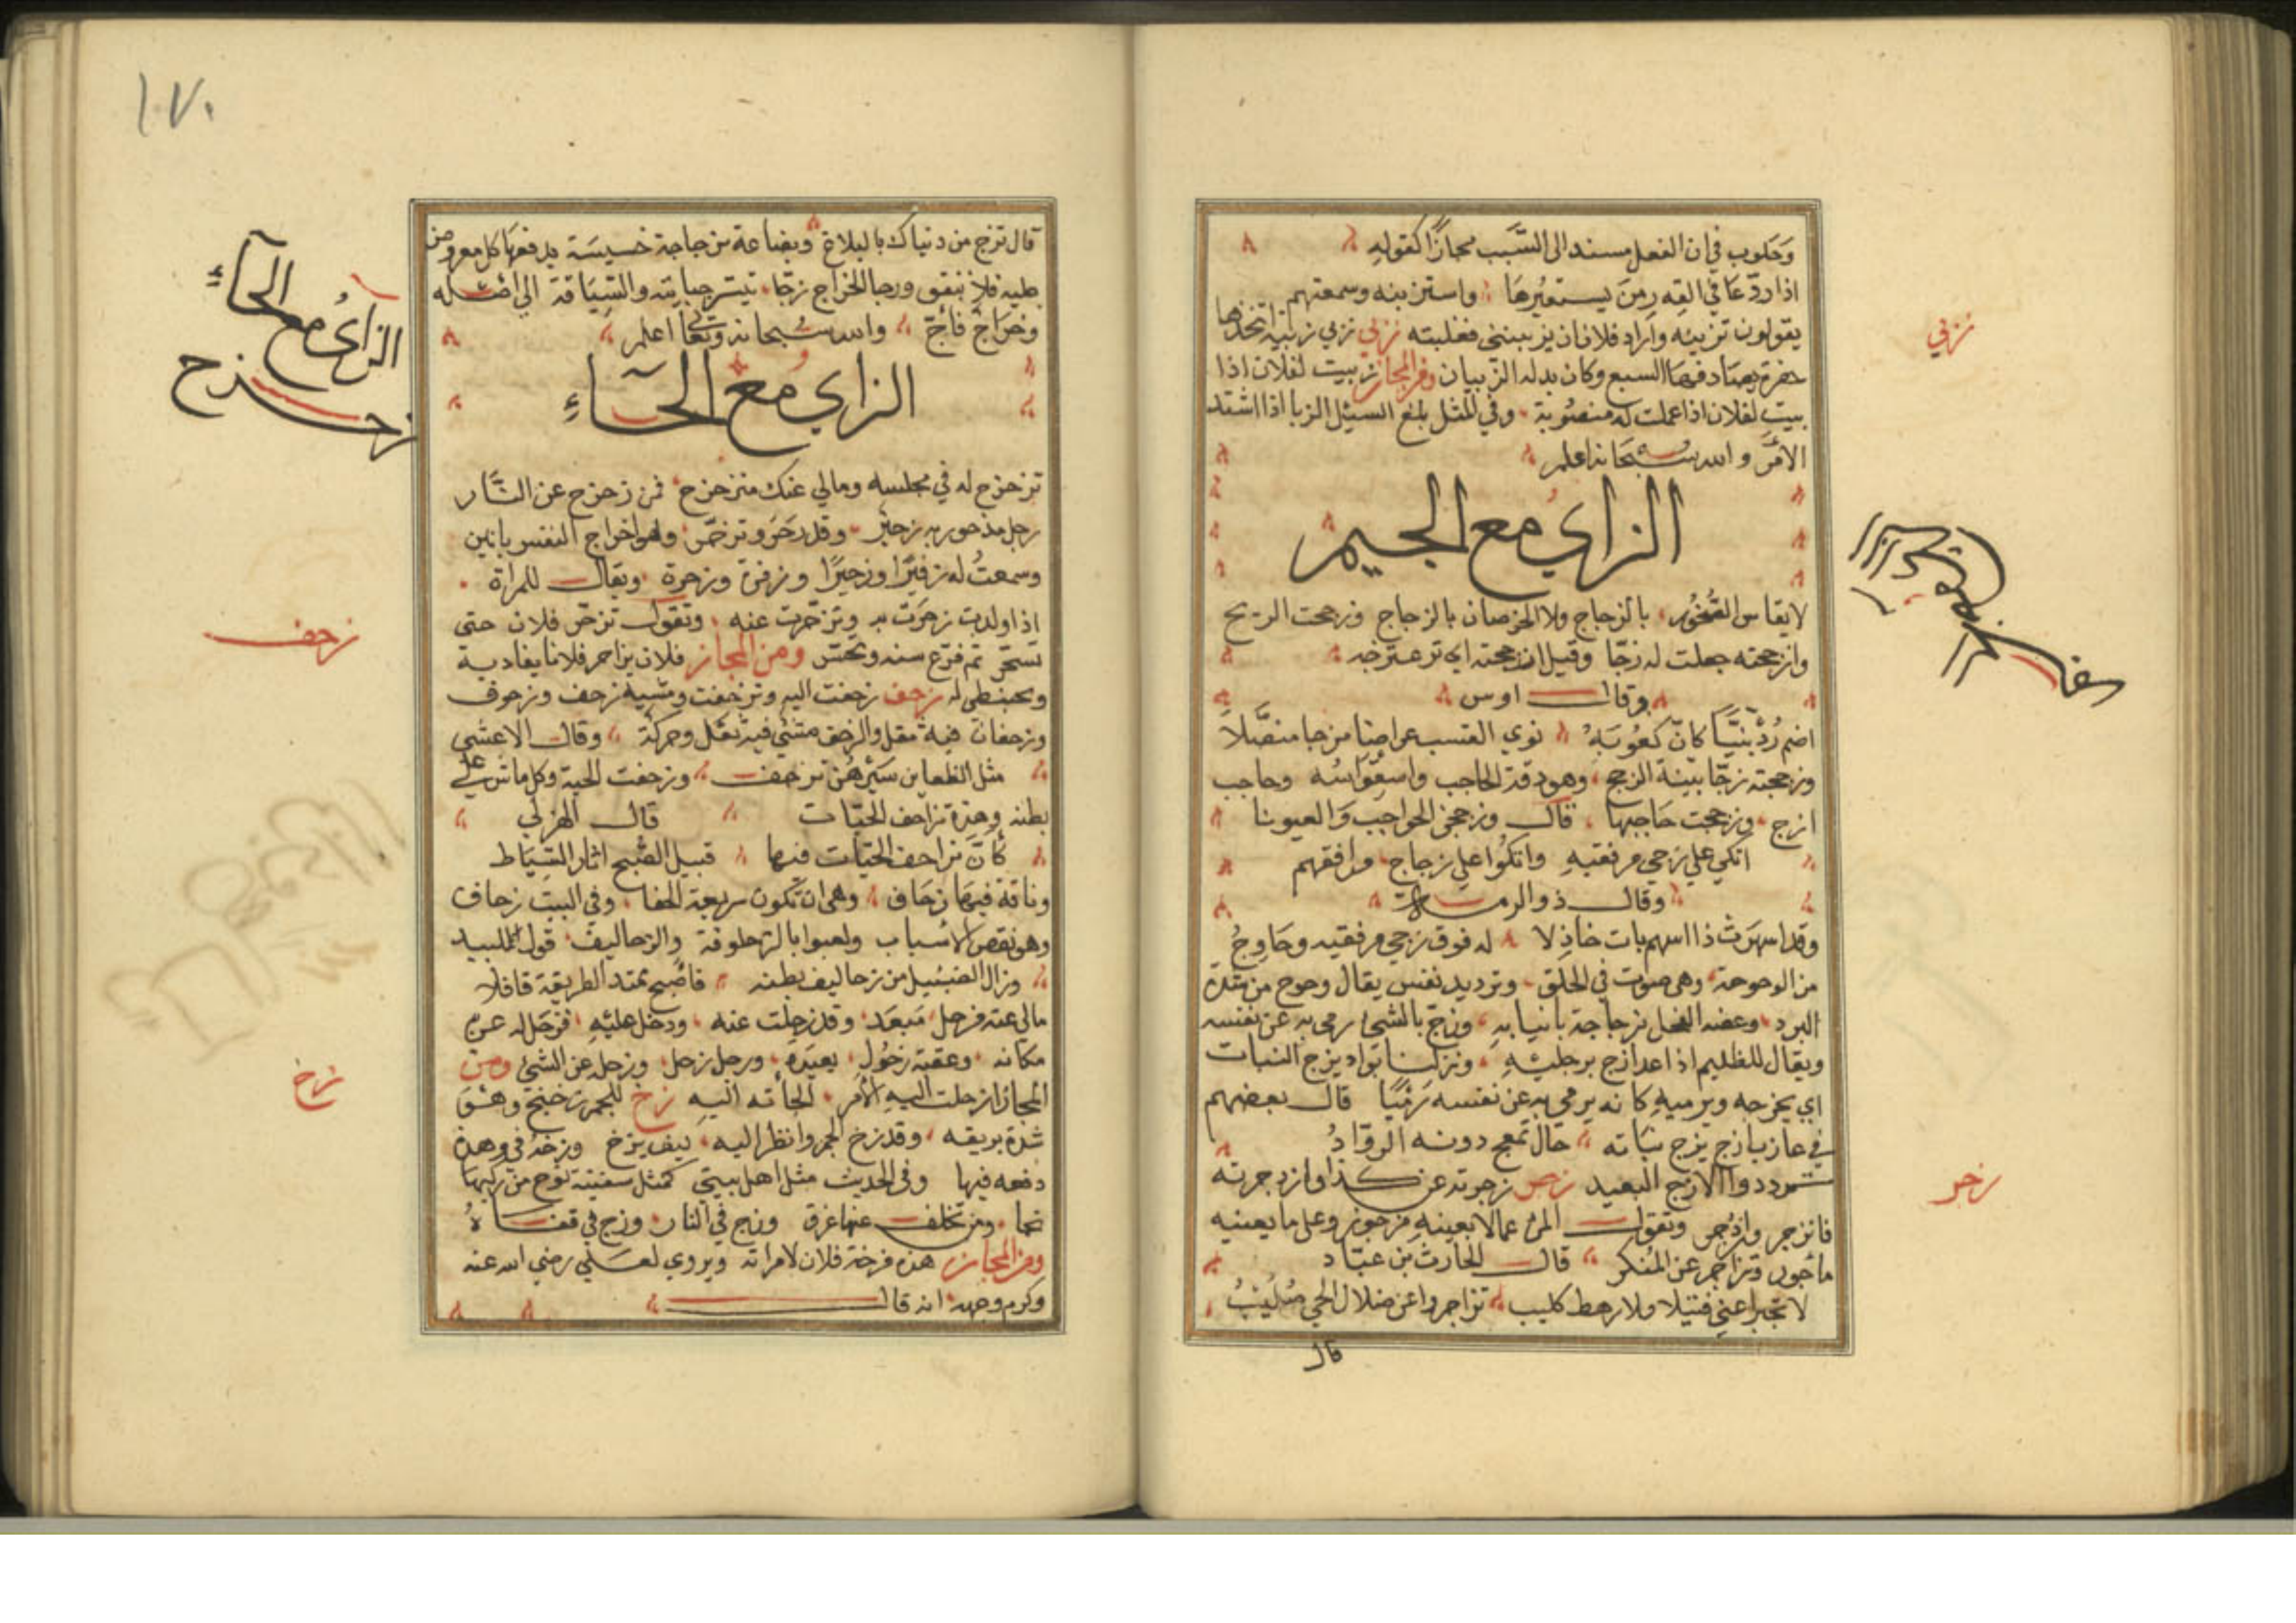 وَحَلوب في ان الفعل مسند الى السَّبب مجازًا كقولهِ
اذا ردّ عَا في القِدرِ مِنَ يستعيرُهَا واستزبنه وسمعتهم
يقولون تزبينه واراد فلان ان يزببنني فغلبته زبي زبي زبية اتخذها
حفرة يصاد فيها السبع وكان بدله الزبيان ومن المجاز زبيت لفلان اذا
بيت لفلان اذا عملت له منصُوبة وفي المثل بلغ السيل الزبا اذا اشتد
الأمرَّ والله سبحانه اعلم
الزاي مع الجيم
لا يقاس الصُّخور بالزجاج ولا الخرصان بالزجاج وزججت الريح
وازججته جعلت له زجًّا وقيل ازججته اي نزعت زجه
وقال اوس
اضم رُدَينيًّا كانّ كعُوبَهُ نوي القسب عراصًا مزجا منصَّلاً
وزججته زجًّا بينة الزجج وهو دقة الحاجب واستقواسه وحاجب
ازج وزججت حاجبها قال وزججن الحواجب وَالعيونا
اتكى على زجي مرفقيهِ واتكوُا على زجاج مرافقهم
وقال ذو الرمة
وقد اسهرَت ذا اسهم بات خاذِلا له فوق زجي مرفقيه وحَاوِحُ
من الوحوحة وهي صوت في الحلق وترديد نفس يقال وحوح من شدة
البرد وعضه الفحل بزجاجه بانيابهِ وزج بالشئ رمى به عن نفسه
ويقال للظليم اذا عدا زج برجليْهِ ونزلنا بواد يزج النبات
اي يخرجه ويرميهِ كانه يرمي به عن نفسه رَميًا قال بعضهم
في عازب ازج يزج نباته حال تمعج دونه الروّادُ
الازج البعيد زجر زجرته عن كذا وازدجرته
فانزجر وازدجر وتقول المرء عما لا يعينهِ مزجور وعلى ما يعينه
ماجور وتزاجر عن المُنكر قال الحارث بن عبّاد
لا تجبر اعني فتيلا ولا رهط كليب تزاجروا عن ضلال
قال
زبي
الزاي مع الجيم
زجر
١٧٠
قال تزج من دنياك بالبلاغ وبضاعة مزجاة خسيسة يدفعها كل معروض
عليه فلا تنفق وزجا الخراج زجًا تيسر جبايته والسِيَاقة الى اهله
وخراج فأجّ والله سبحانه وتعالى اعلم
الزاي مع الحآءِ
تزحزح له في مجلسه ومالي عنك متزحزح فمن زحزح عن النَّار
رجل مزحور به زحير وقد زحَر وتزحّر وهو اخراج النفس بانين
وسمعتُ له زفيرًا وزحيرًا وزفرة وزحرة ويقال للمراة
اذا ولدت زحرَت به وتزحّرت عنه وتقول تزحّر فلان حتى
تسحّر ثم فرّع سنه وتحسّر ومن المجاز فلان يزاحر فلانا يعاديه
ويحبنطى له زحف زحفت اليه وتزحفت ومشيه زحف وزحوف
وزحفان فيه ثقل والزحف مشي فيه ثقل وحركة وقال الاعشى
مثل الظعاين سَيْرهُن تزحف وزحفت الحية وكل ماش على
بطنه وهذه مزاحف الحيّات قال الهزلي
كأنّ مزاحف الحيّات فيها قبيل الصُّبح اثار السِّيَاط
وناقة فيها زحَاف وهي ان تكون سريعة الحفا وفي البيت زحاف
وهو نقص الاسباب ولعبوا بالزحلوفة والزحاليف قول لبيد
وزال من زحاليف بطنه فاصْبح ممتد الطريقة قافلا
مالى عنه مزحل مَبعَد وقد زحلت عنه ودخل عليْهِ فزحَل له عن
مكانه وعقبة زحُول بعيدة ورجل زحل وزحل عن الشئ ومن
المجاز ازحلت اليه الأمر الجأته اليهِ زخ للجمر زخيخ وهو
شدة بريقه وقد زخ الجمر وانظر اليه كيف يزخ وزخه في وهدة
دفعه فيها وفي الحديث مثل اهل بيتي كمثل سفينة نوح من ركبها
نجا ومن تخلف عنها غرق وزج في النار وزج في قفاهُ
ومن المجاز هذه مزخة فلان لامراته ويروي لعلي رضي الله عنه
وكرم وجهه انه قال
الزاي مع الحآءِ
زحزح
زحف
زخ